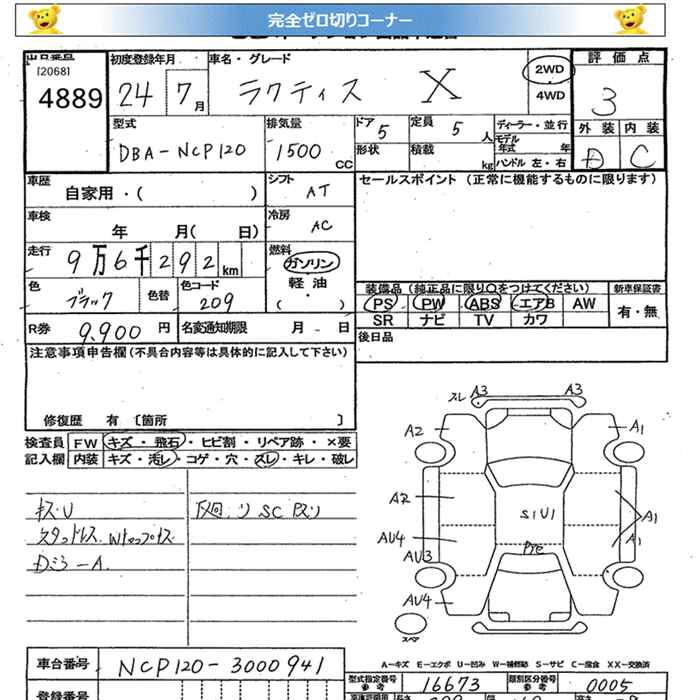 完全ゼロ切りコーナー
出品番号 初度登録年月 車名・グレード 評価点
[2068]
4889 24 7月 ラクティス X 2WD 4WD 3
型式 排気量 ドア 5 定員 5人 ディーラー・並行 外装 内装
DBA-NCP120 1500CC 形状 積載 kg モデル年式 年 ハンドル 左・右 D C
車歴 自家用・( ) シフト AT セールスポイント(正常に機能するものに限ります)
車検 年 月( 日) 冷房 AC
走行 9万6千292km 燃料 ガソリン 軽油 ( )
色 ブラック 色替 色コード 209 装備品(純正品に限り○をつけてください) 新車保証書
PS PW ABS エアB AW 有・無
R券 9,900円 名変通知期限 月 日 SR ナビ TV カワ
注意事項申告欄(不具合内容等は具体的に記入して下さい) 後日品
修復歴 有 〔箇所 〕
検査員 FW キズ・飛石・ヒビ割・リペア跡・×要
記入欄 内装 キズ・汚レ・コゲ・穴・スレ・キレ・破レ
キズ・U
スタッドレス
Dミラ-A
スレ A3 A3
A2 A1
A2 S1U1 A1
AU4 A1
AU3
AU4
スペア
A-キズ E-エクボ U-凹み W-補修跡 S-サビ C-腐食 XX-交換済
車台番号 NCP120-3000941
型式指定番号 参考 16673 類別区分番号 参考 0005
登録番号